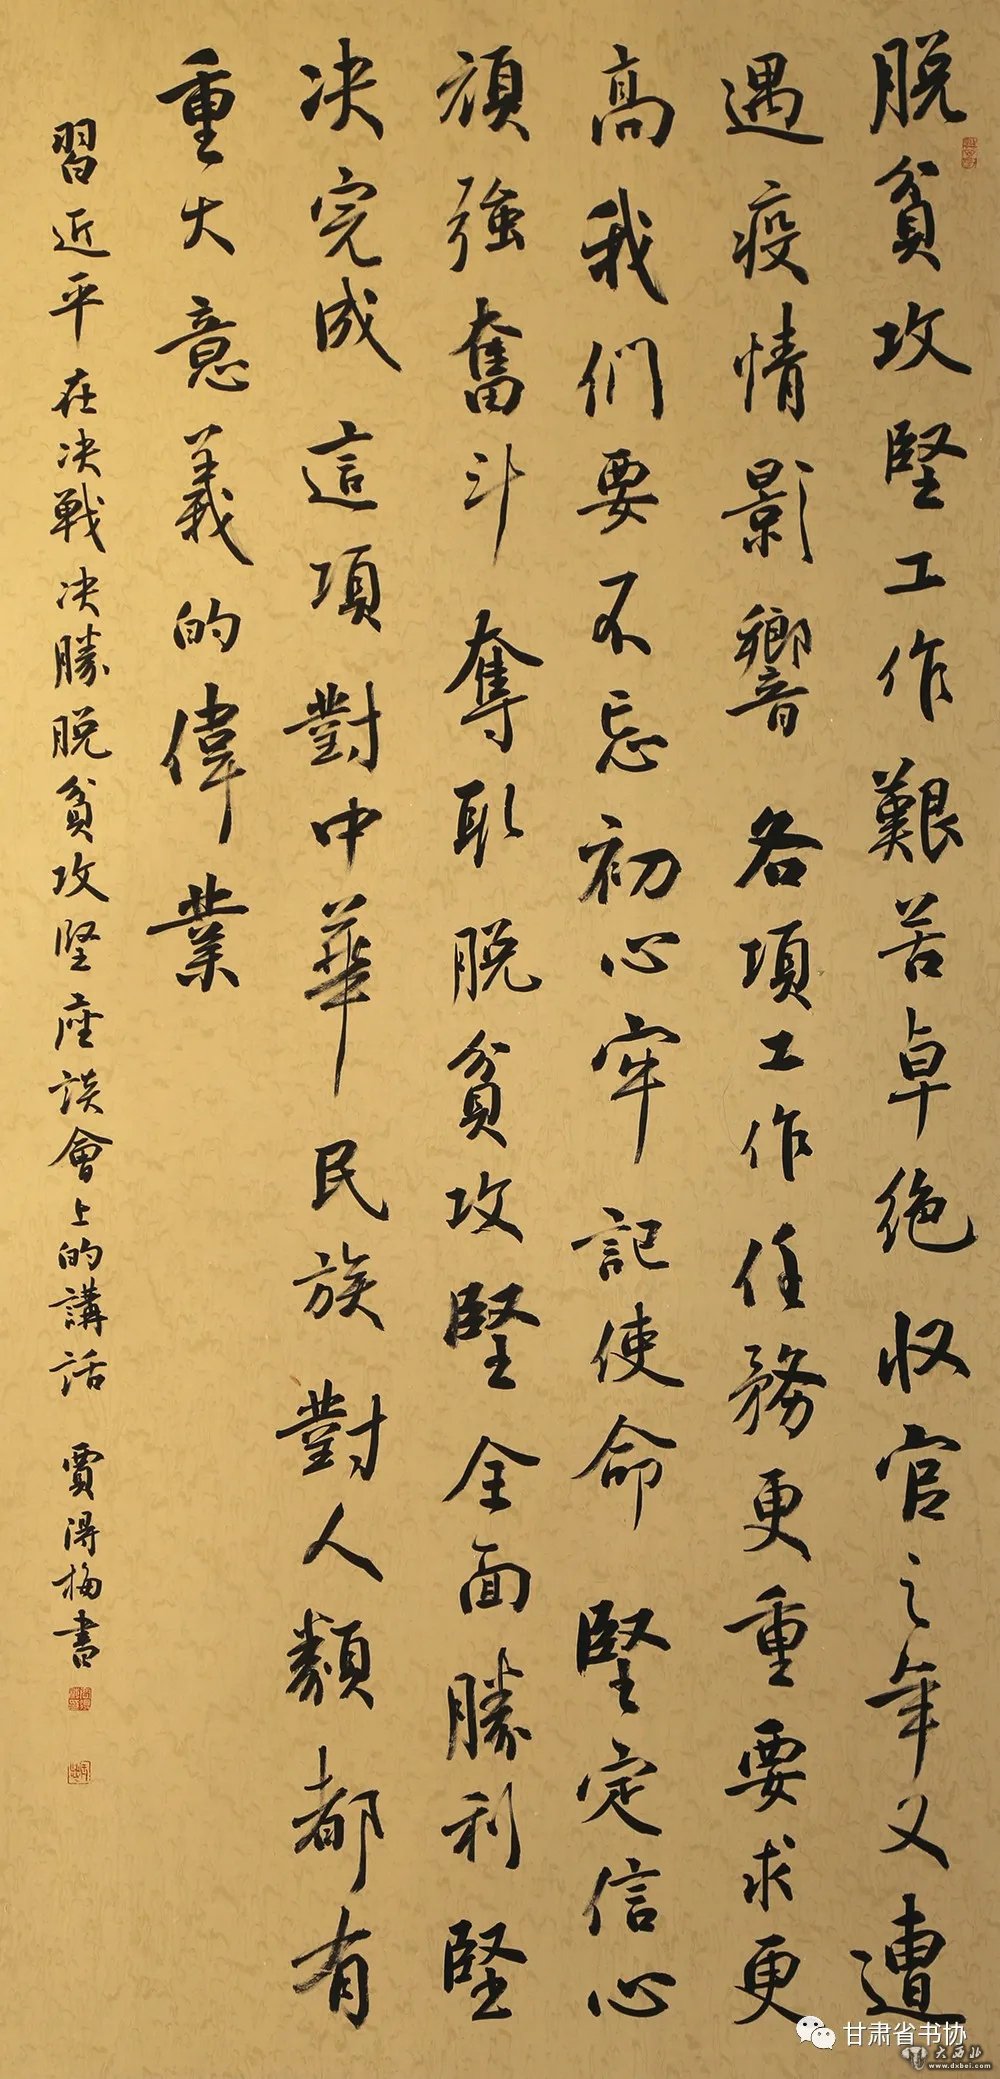 脱貧攻堅工作艱苦卓绝收官之年又遭
遇疫情影響各項工作任務更重要求更
高我們要不忘初心牢記使命堅定信心
頑強奮斗奪取脱貧攻堅全面勝利堅
决完成這項對中華民族對人類都有
重大意義的偉業
習近平在决戰决勝脱貧攻堅座談會上的講話 賈得梅書
甘肃省书协
大西北
www.dxbei.com